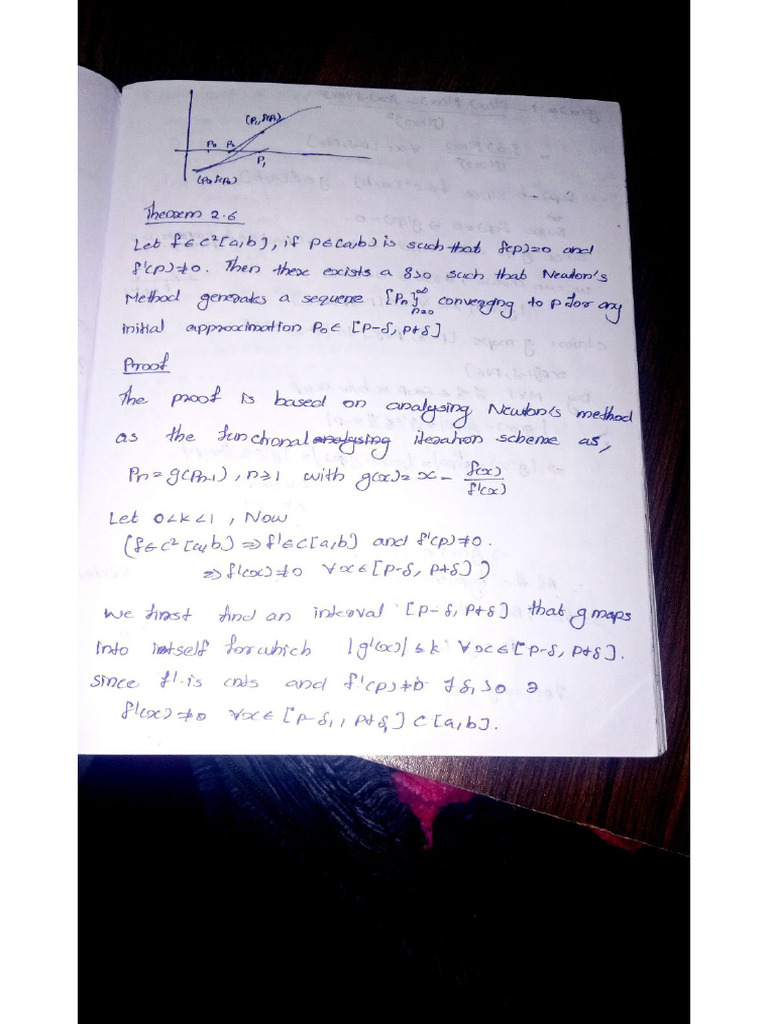 (P₁, f(P₁))
P₀ P₂
P₁
(P₀ f(P₀))
Theorem 2.6
Let f ∈ C²[a,b], if P∈[a,b] is such that f(p)=0 and
f'(p)≠0. Then there exists a δ>0 such that Newton's
Method generates a sequene {Pn}∞n=0 converging to p for any
initial approximation P₀ ∈ [P-δ, P+δ]
Proof
The proof is based on analysing Newton's method
as the functional analysing iteration scheme as,
Pn = g(Pn-1), n≥1 with g(x) = x - f(x)/f'(x)
Let 0<k<1, Now
(f∈C²[a,b] ⇒ f'∈C[a,b] and f'(p)≠0.
⇒ f'(x)≠0 ∀x∈[P-δ, P+δ])
We first find an interval [P-δ, P+δ] that g maps
into itself for which |g'(x)| ≤ k ∀x∈[P-δ, P+δ].
since f' is cnts and f'(p)≠0 ∃ δ₁>0 ∋
f'(x)≠0 ∀x∈[P-δ₁, P+δ₁] ⊂ [a,b].